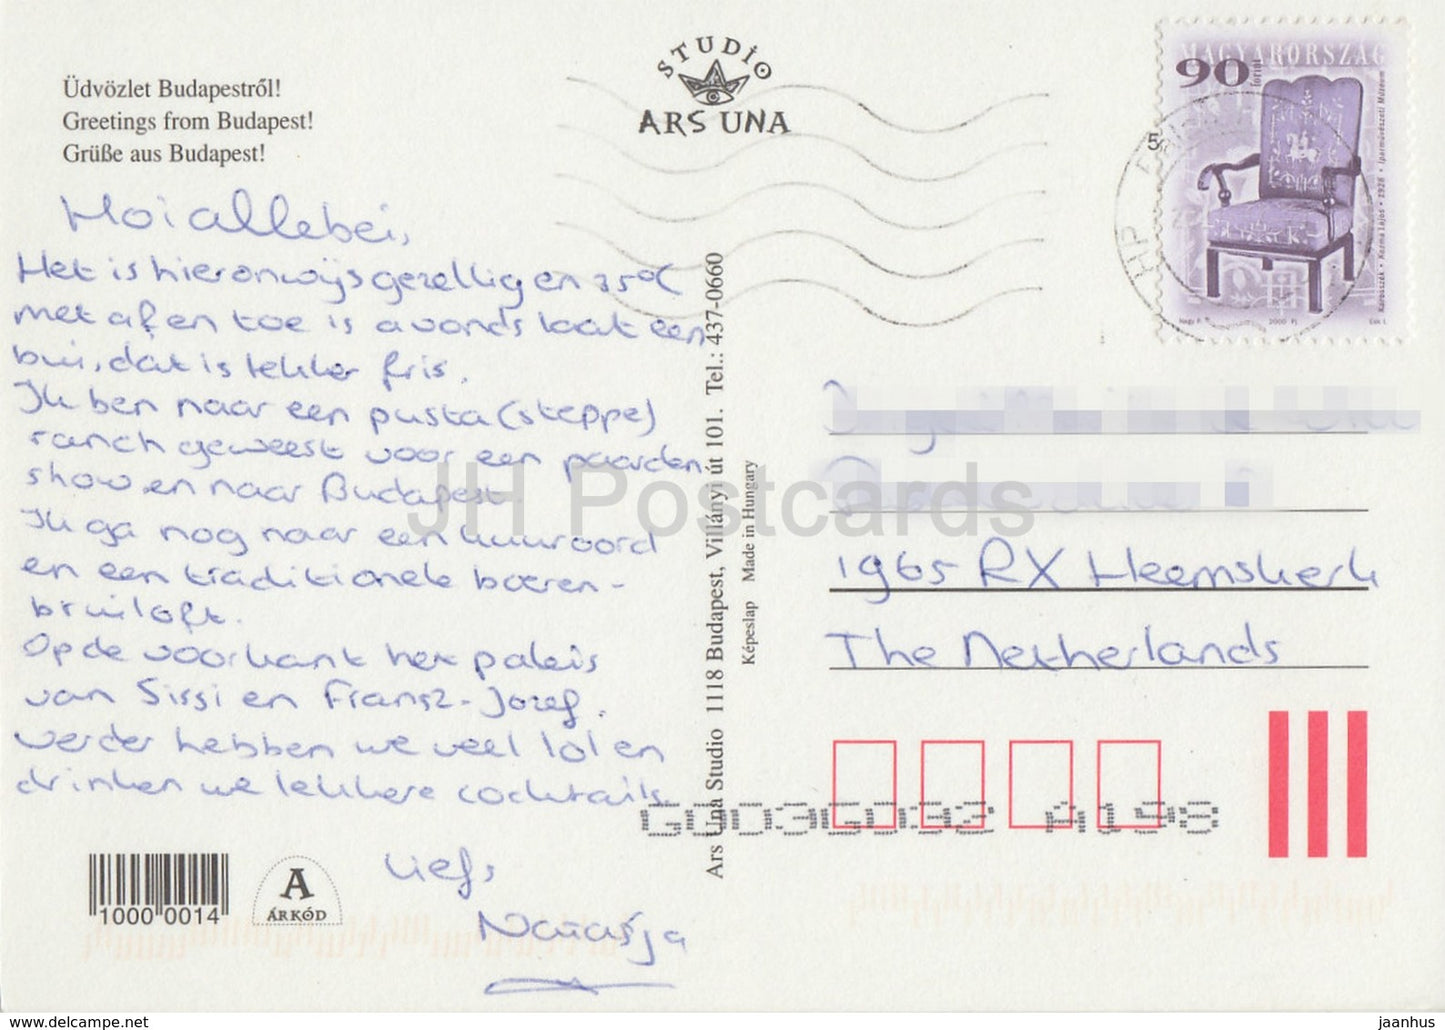 Üdvözlet Budapestről!
Greetings from Budapest!
Grüße aus Budapest!
STUDIO
ARS UNA
MAGYARORSZÁG
90
forint
Karosszék • Kozma Lajos • 1928 • Iparművészeti Múzeum
Nagy P.
2000 PJ.
Hoi allebei,
Het is hier onwijs gezellig en 35°C
met af en toe is avonds laat een
bui, dat is lekker fris.
Ik ben naar een pusta (steppe)
ranch geweest voor een paarden
show en naar Budapest.
Ik ga nog naar een kuuroord
en een traditionele boeren-
bruiloft.
Op de voorkant het paleis
van Sissi en Fransz-Jozef.
verder hebben we veel lol en
drinken we lekkere cocktails
Liefs
Natasja
Ars Una Studio 1118 Budapest, Villányi út 101. Tel.: 437-0660
Képeslap Made in Hungary
1965 RX Heemskerk
The Netherlands
A198
1000 0014
A
ÁRKÁD
JH Postcards
www.delcampe.net
jaanhus